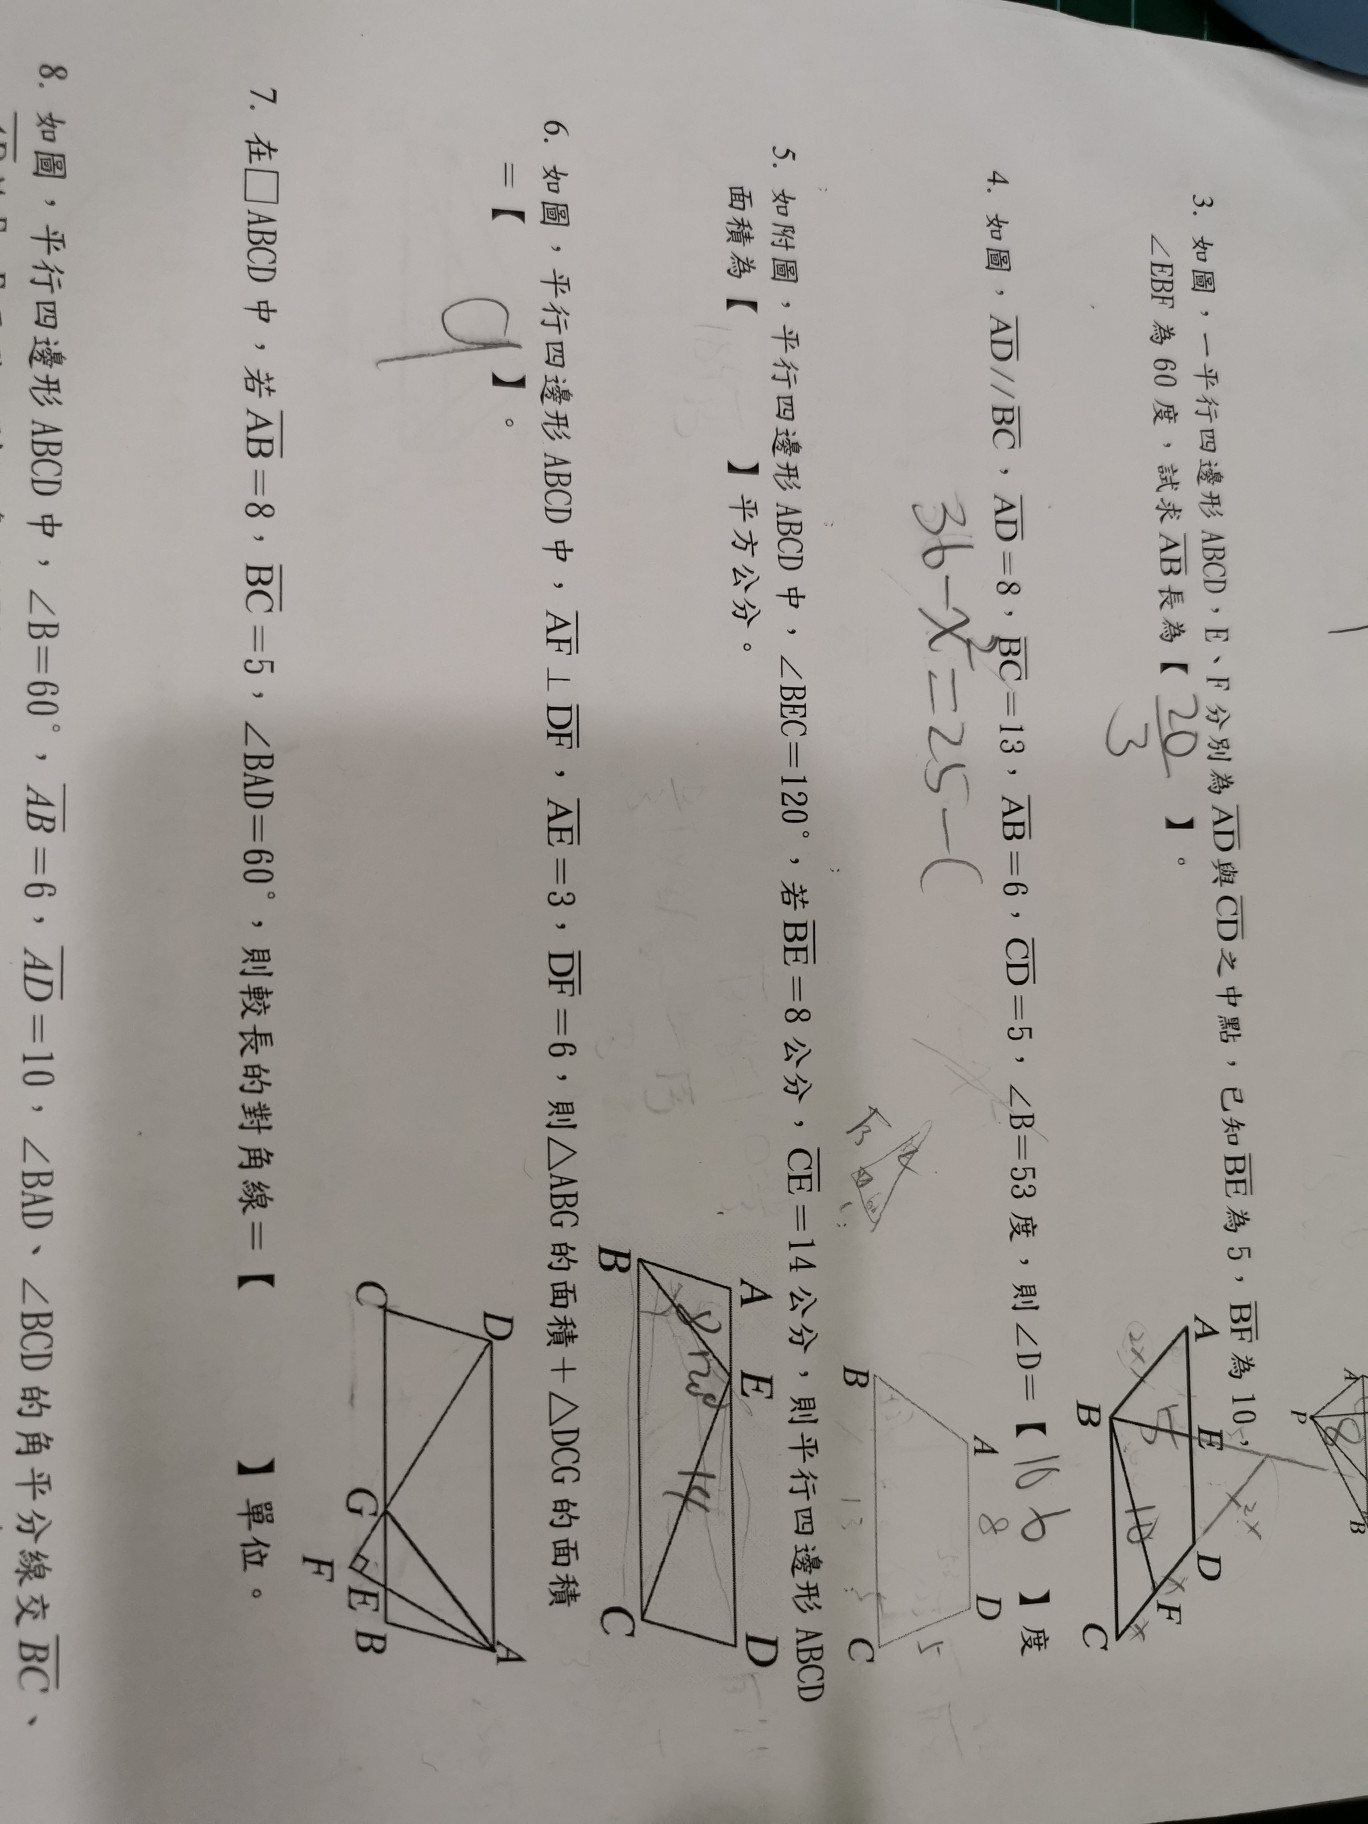 3. 如圖，一平行四邊形 ABCD，E、F 分別為 AD 與 CD 之中點，已知 BE 為 5，BF 為 10，
∠EBF 為 60 度，試求 AB 長為【 20/3 】。
A E D F B C
2x 5 10 2x x x
A P B 8
4. 如圖，AD//BC，AD=8，BC=13，AB=6，CD=5，∠B=53 度，則∠D=【 106 】度
36-x²=25-(
A 8 D
B 13 C 5
5. 如附圖，平行四邊形 ABCD 中，∠BEC=120°，若 BE=8 公分，CE=14 公分，則平行四邊形 ABCD
面積為【 】平方公分。
A E D
8 120 14
B C
6. 如圖，平行四邊形 ABCD 中，AF⊥DF，AE=3，DF=6，則△ABG 的面積＋△DCG 的面積
=【 9 】。
D A
C G E B
F
7. 在□ABCD 中，若 AB=8，BC=5，∠BAD=60°，則較長的對角線=【 】單位。
8. 如圖，平行四邊形 ABCD 中，∠B=60°，AB=6，AD=10，∠BAD、∠BCD 的角平分線交 BC、